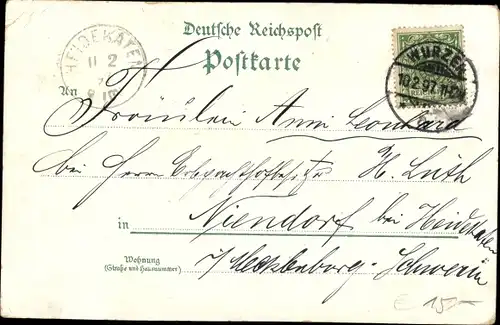 Deutsche Reichspost
Postkarte
HEIDEKATEN
11 2
WURZEN
10.2.97. 11-12
An
Fräulein Anni Leonhard
bei Herrn Erbpachthofbesitzer H. Lüth
in Niendorf bei Heidekaten
i/Mecklenburg-Schwerin
Wohnung
(Straße und Hausnummer)
€ 15,-